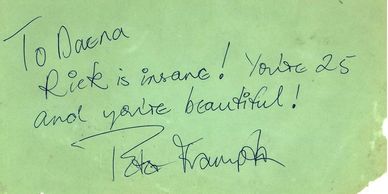 To Daena
Rick is insane! You're 25
and you're beautiful!
Peter Frampton